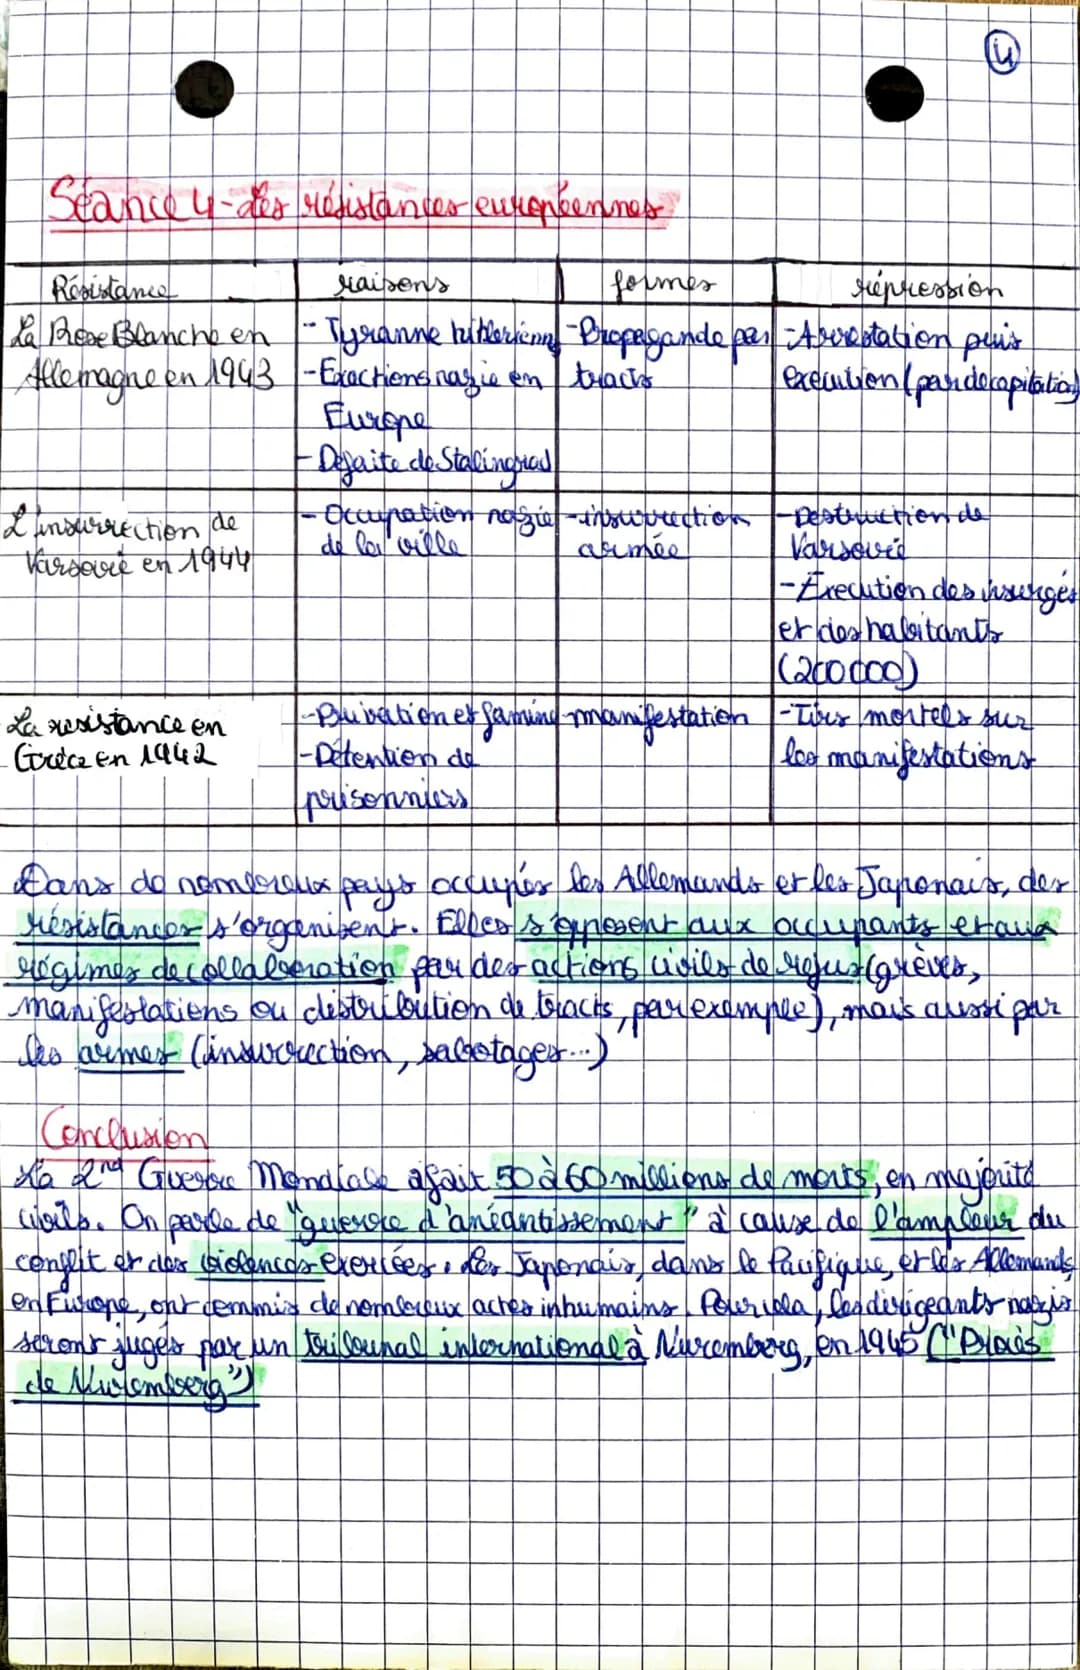 4
Séance 4-des résistances européennes
Résistance
raisons
formes
répression
La Rose Blanche en
Allemagne en 1943
- Tyranne hitlérienne
-Exactions nazie en
Europe
- Défaite de Stalingrad
-Propagande par
tracts
-Arrestation puis
execution (par decapitation)
L'insurrection de
Varsovie en 1944
- Occupation nazie
de la ville
-insurrection
armée
-Destruction de
Varsovie
-Execution des insurgés
et des habitants
(200 000)
La resistance en
Grèce en 1942
-Privation et famine
-Détention de
prisonniers
-manifestation
-Tirs mortels sur
les manifestations
Dans de nombreux pays occupés les Allemands et les Japonais, des
résistances s'organisent. Elles s'opposent aux occupants et aux
régimes de collaboration par des actions civils de refus (grèves,
manifestations ou distribution de tracts, par exemple), mais aussi par
les armes (insurrection, sabotages...)
Conclusion
La 2nd Guerre Mondiale a fait 50 à 60 millions de morts, en majorité
civils. On parle de "guerre d'anéantissement" à cause de l'ampleur du
conflit et des violences exercées. Les Japonais, dans le Pacifique, et les Allemands,
en Europe, ont commis de nombreux actes inhumains. Pour cela, les dirigeants nazis
seront jugés par un tribunal international à Nuremberg, en 1945 ("Procès
de Nuremberg")